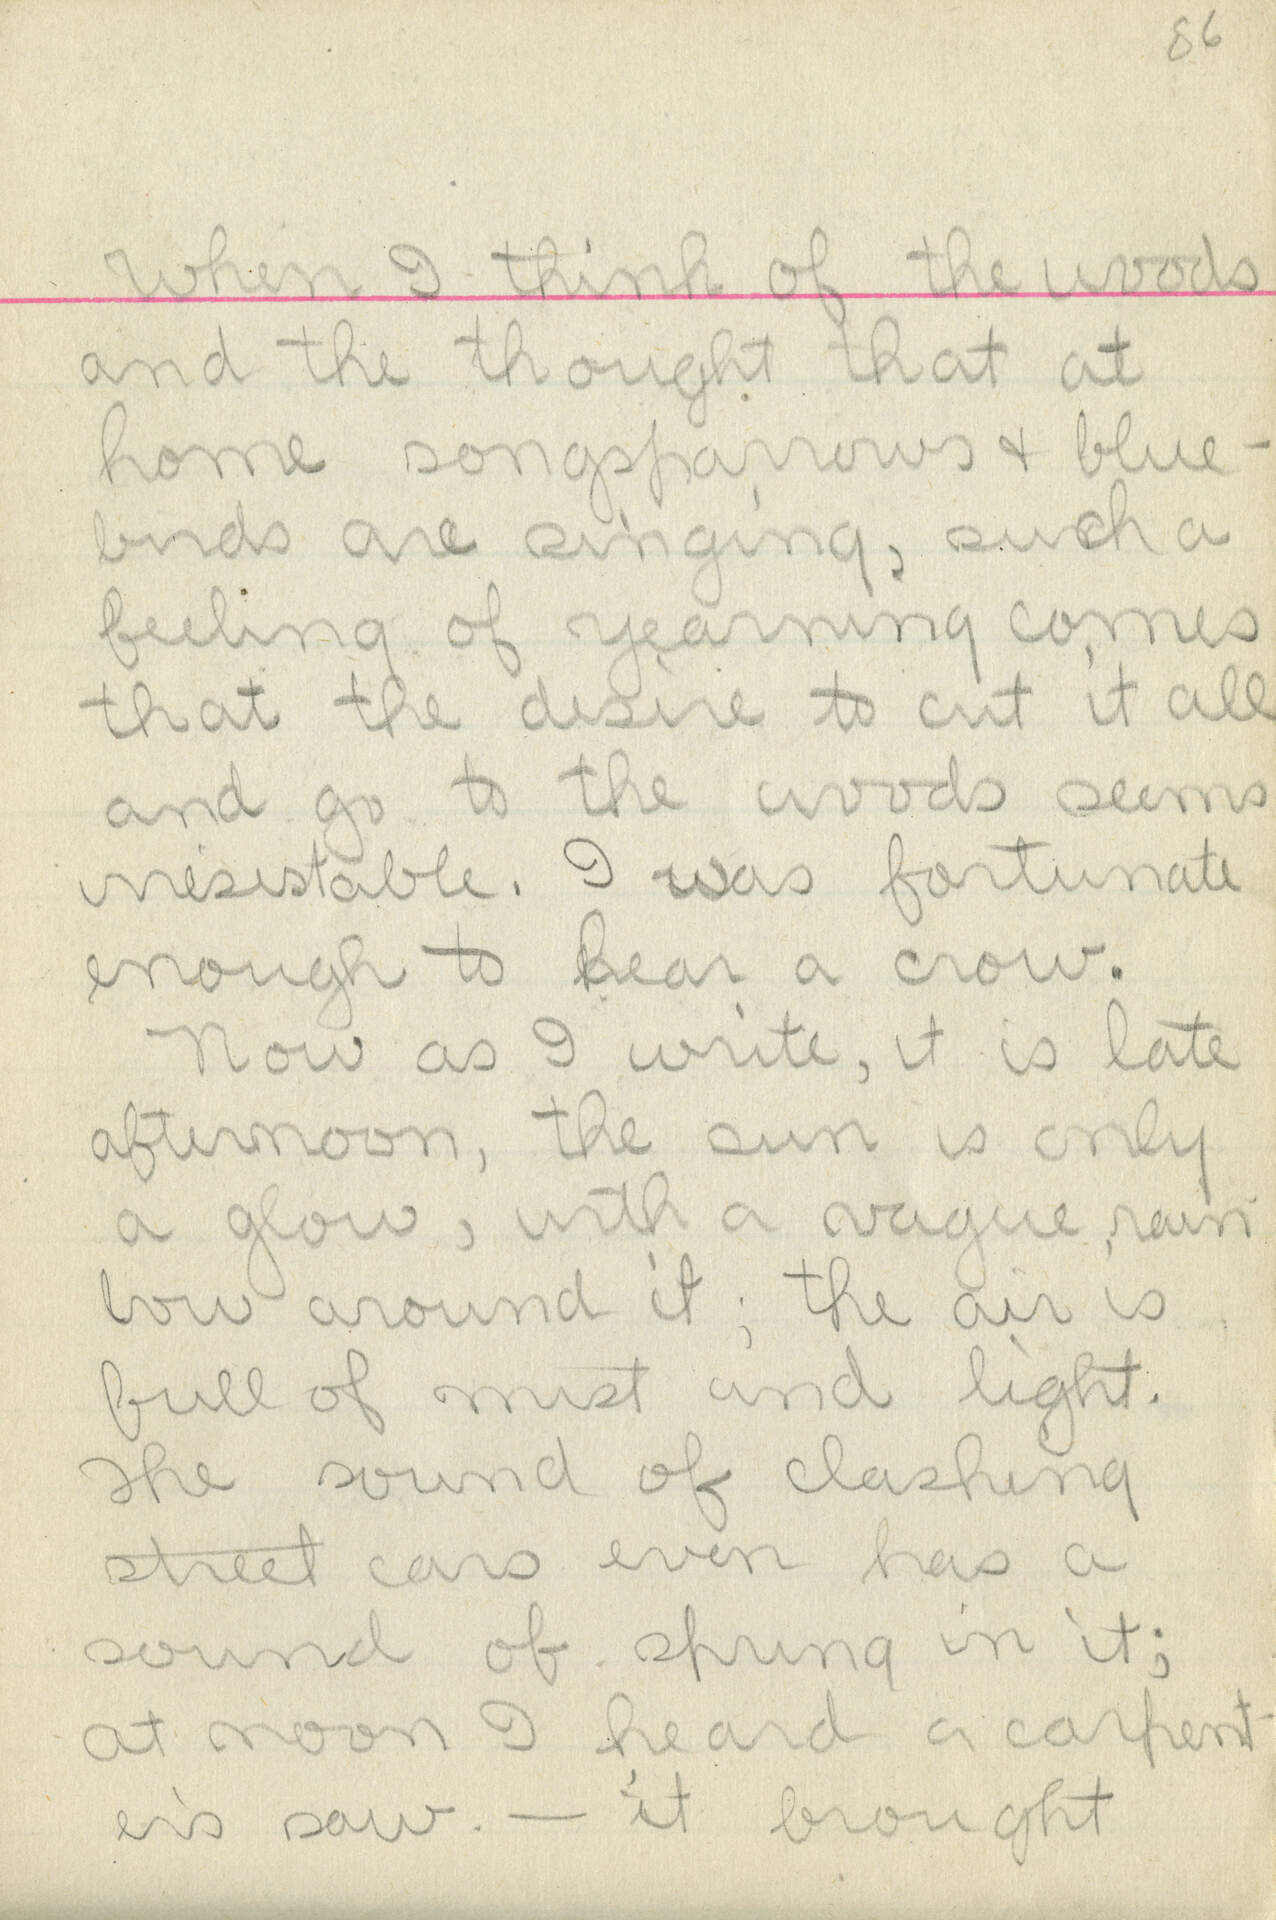 86
When I think of the woods
and the thought that at
home songsparrows & blue-
birds are singing, such a
feeling of yearning comes
that the desire to cut it all
and go to the woods seems
irresistable. I was fortunate
enough to hear a crow.
Now as I write, it is late
afternoon, the sun is only
a glow, with a vague rain
bow around it; the air is
full of mist and light.
The sound of clashing
street cars even has a
sound of spring in it;
at noon I heard a carpent-
er's saw. — it brought